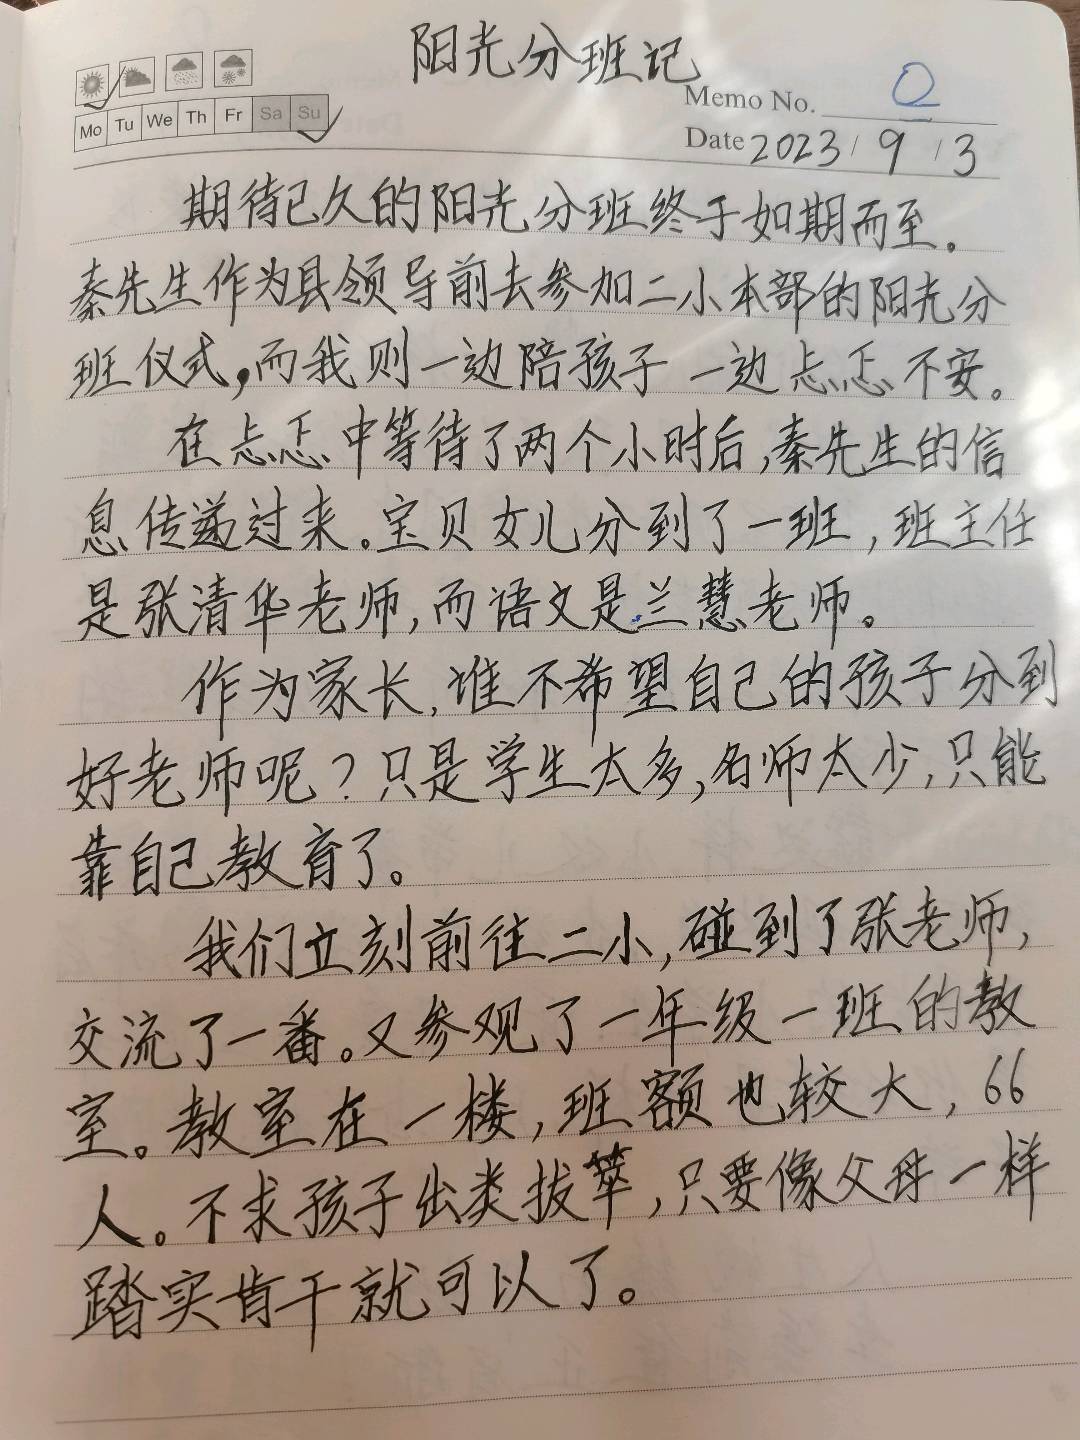 阳光分班记
Mo Tu We Th Fr Sa Su
Memo No.
Date 2023/9/3
期待已久的阳光分班终于如期而至。
秦先生作为县领导前去参加二小本部的阳光分
班仪式,而我则一边陪孩子一边忐忑不安。
在忐忑中等待了两个小时后,秦先生的信
息传递过来。宝贝女儿分到了一班,班主任
是张清华老师,而语文是兰慧老师。
作为家长,谁不希望自己的孩子分到
好老师呢?只是学生太多,名师太少,只能
靠自己教育了。
我们立刻前往二小,碰到了张老师,
交流了一番。又参观了一年级一班的教
室。教室在一楼,班额也较大,66
人。不求孩子出类拔萃,只要像父母一样
踏实肯干就可以了。